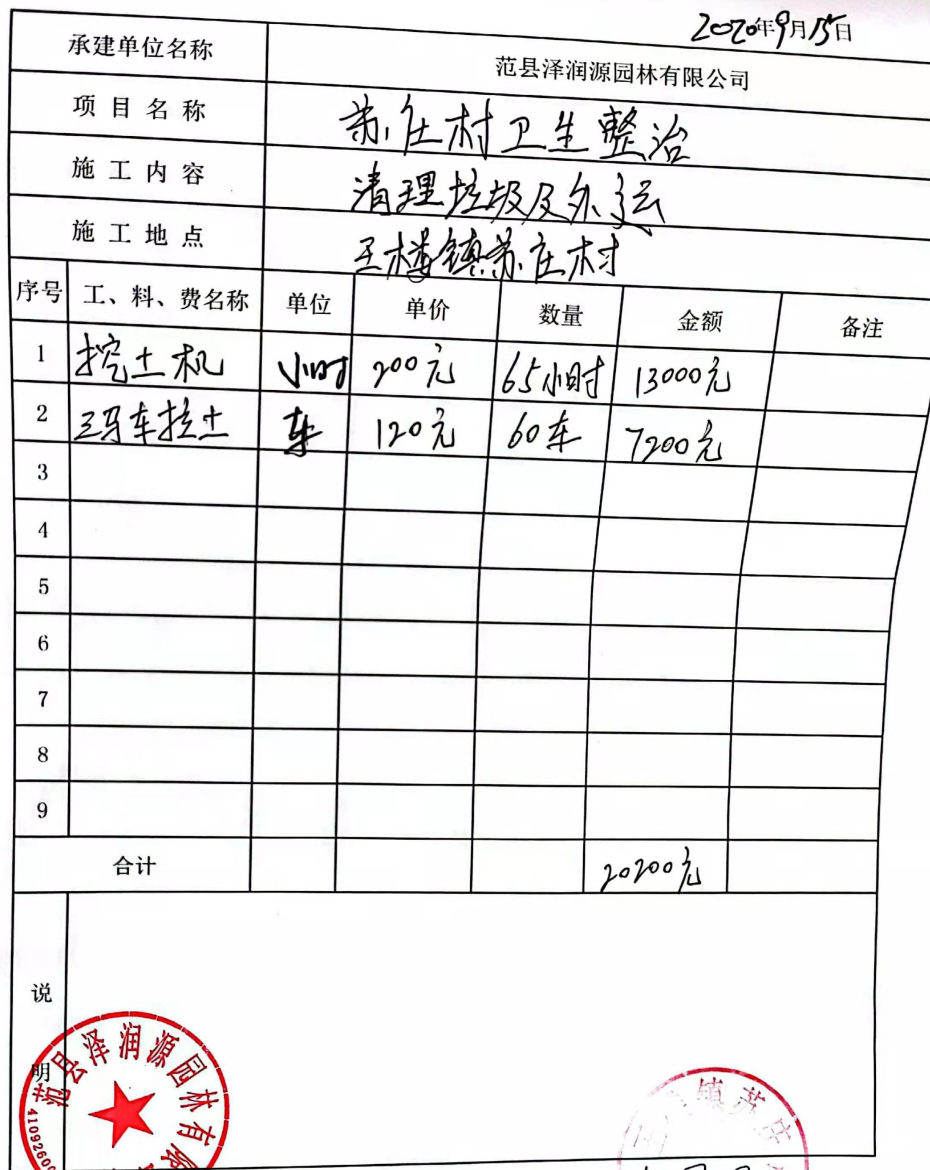 2020年9月15日
承建单位名称 范县泽润源园林有限公司
项目名称 苏庄村卫生整治
施工内容 清理垃圾及外运
施工地点 王楼镇苏庄村
序号 工、料、费名称 单位 单价 数量 金额 备注
1 挖土机 小时 200元 65小时 13000元
2 三马车拉土 车 120元 60车 7200元
3
4
5
6
7
8
9
合计 20200元
说明
范县泽润源园林有限
4109260
镇苏庄